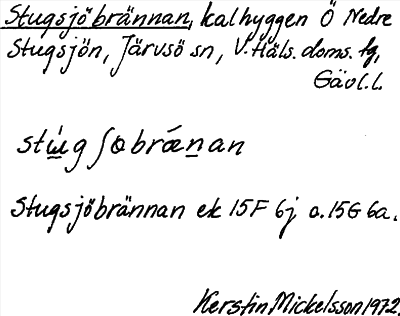 Stugsjöbrännan, kalhyggen Ö Nedre
Stugsjön, Järvsö sn, V. Häls. doms. tg,
Gävl. l.
stú̲g ʃobrǽn̲an
Stugsjöbrännan ek 15F 6j o. 15G 6a.
Kerstin Mickelsson 1972.